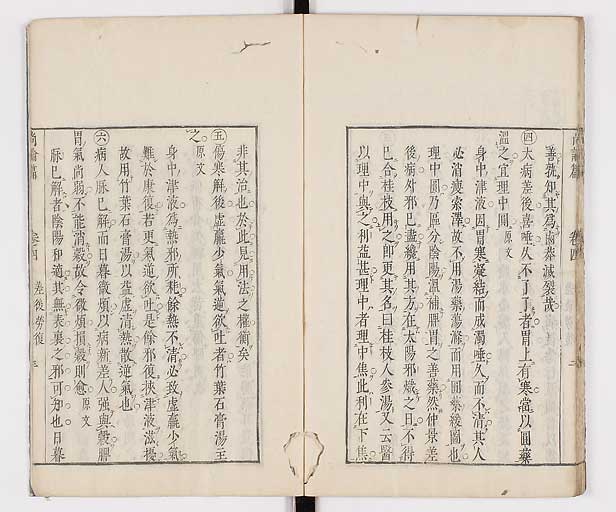 善孰知其爲鹵莽滅裂哉
㊃大病差後喜唾久不了了者胃上有寒當以圓藥
溫之宜理中圓 原文
身中津液因胃寒凝結而成濁唾久而不清其人
必消瘦索澤故不用湯藥蕩滌而用圓藥緩圖也
理中圓乃區分陰陽溫補脾胃之善藥然仲景差
後病外邪已盡纔用其方在太陽邪熾之日不得
已合桂枝用之卽更其名曰桂枝人參湯又云醫
以理中與之利益甚理中者理中焦此利在下焦
尚論篇 卷四 差後勞復 三
非其治也於此見用法之權衡矣
㊄傷寒解後虛羸少氣氣逆欲吐者竹葉石膏湯主
之 原文
身中津液爲熱邪所耗餘熱不清必致虛羸少氣
難於康復若更氣逆欲吐是餘邪復挾津液滋擾
故用竹葉石膏湯以益虛清熱散逆氣也
㊅病人脉已解而日暮微煩以病新差人强與穀脾
胃氣尚弱不能消穀故令微煩損穀則愈 原文
脉已解者陰陽和適其無表裏之邪可知也日暮